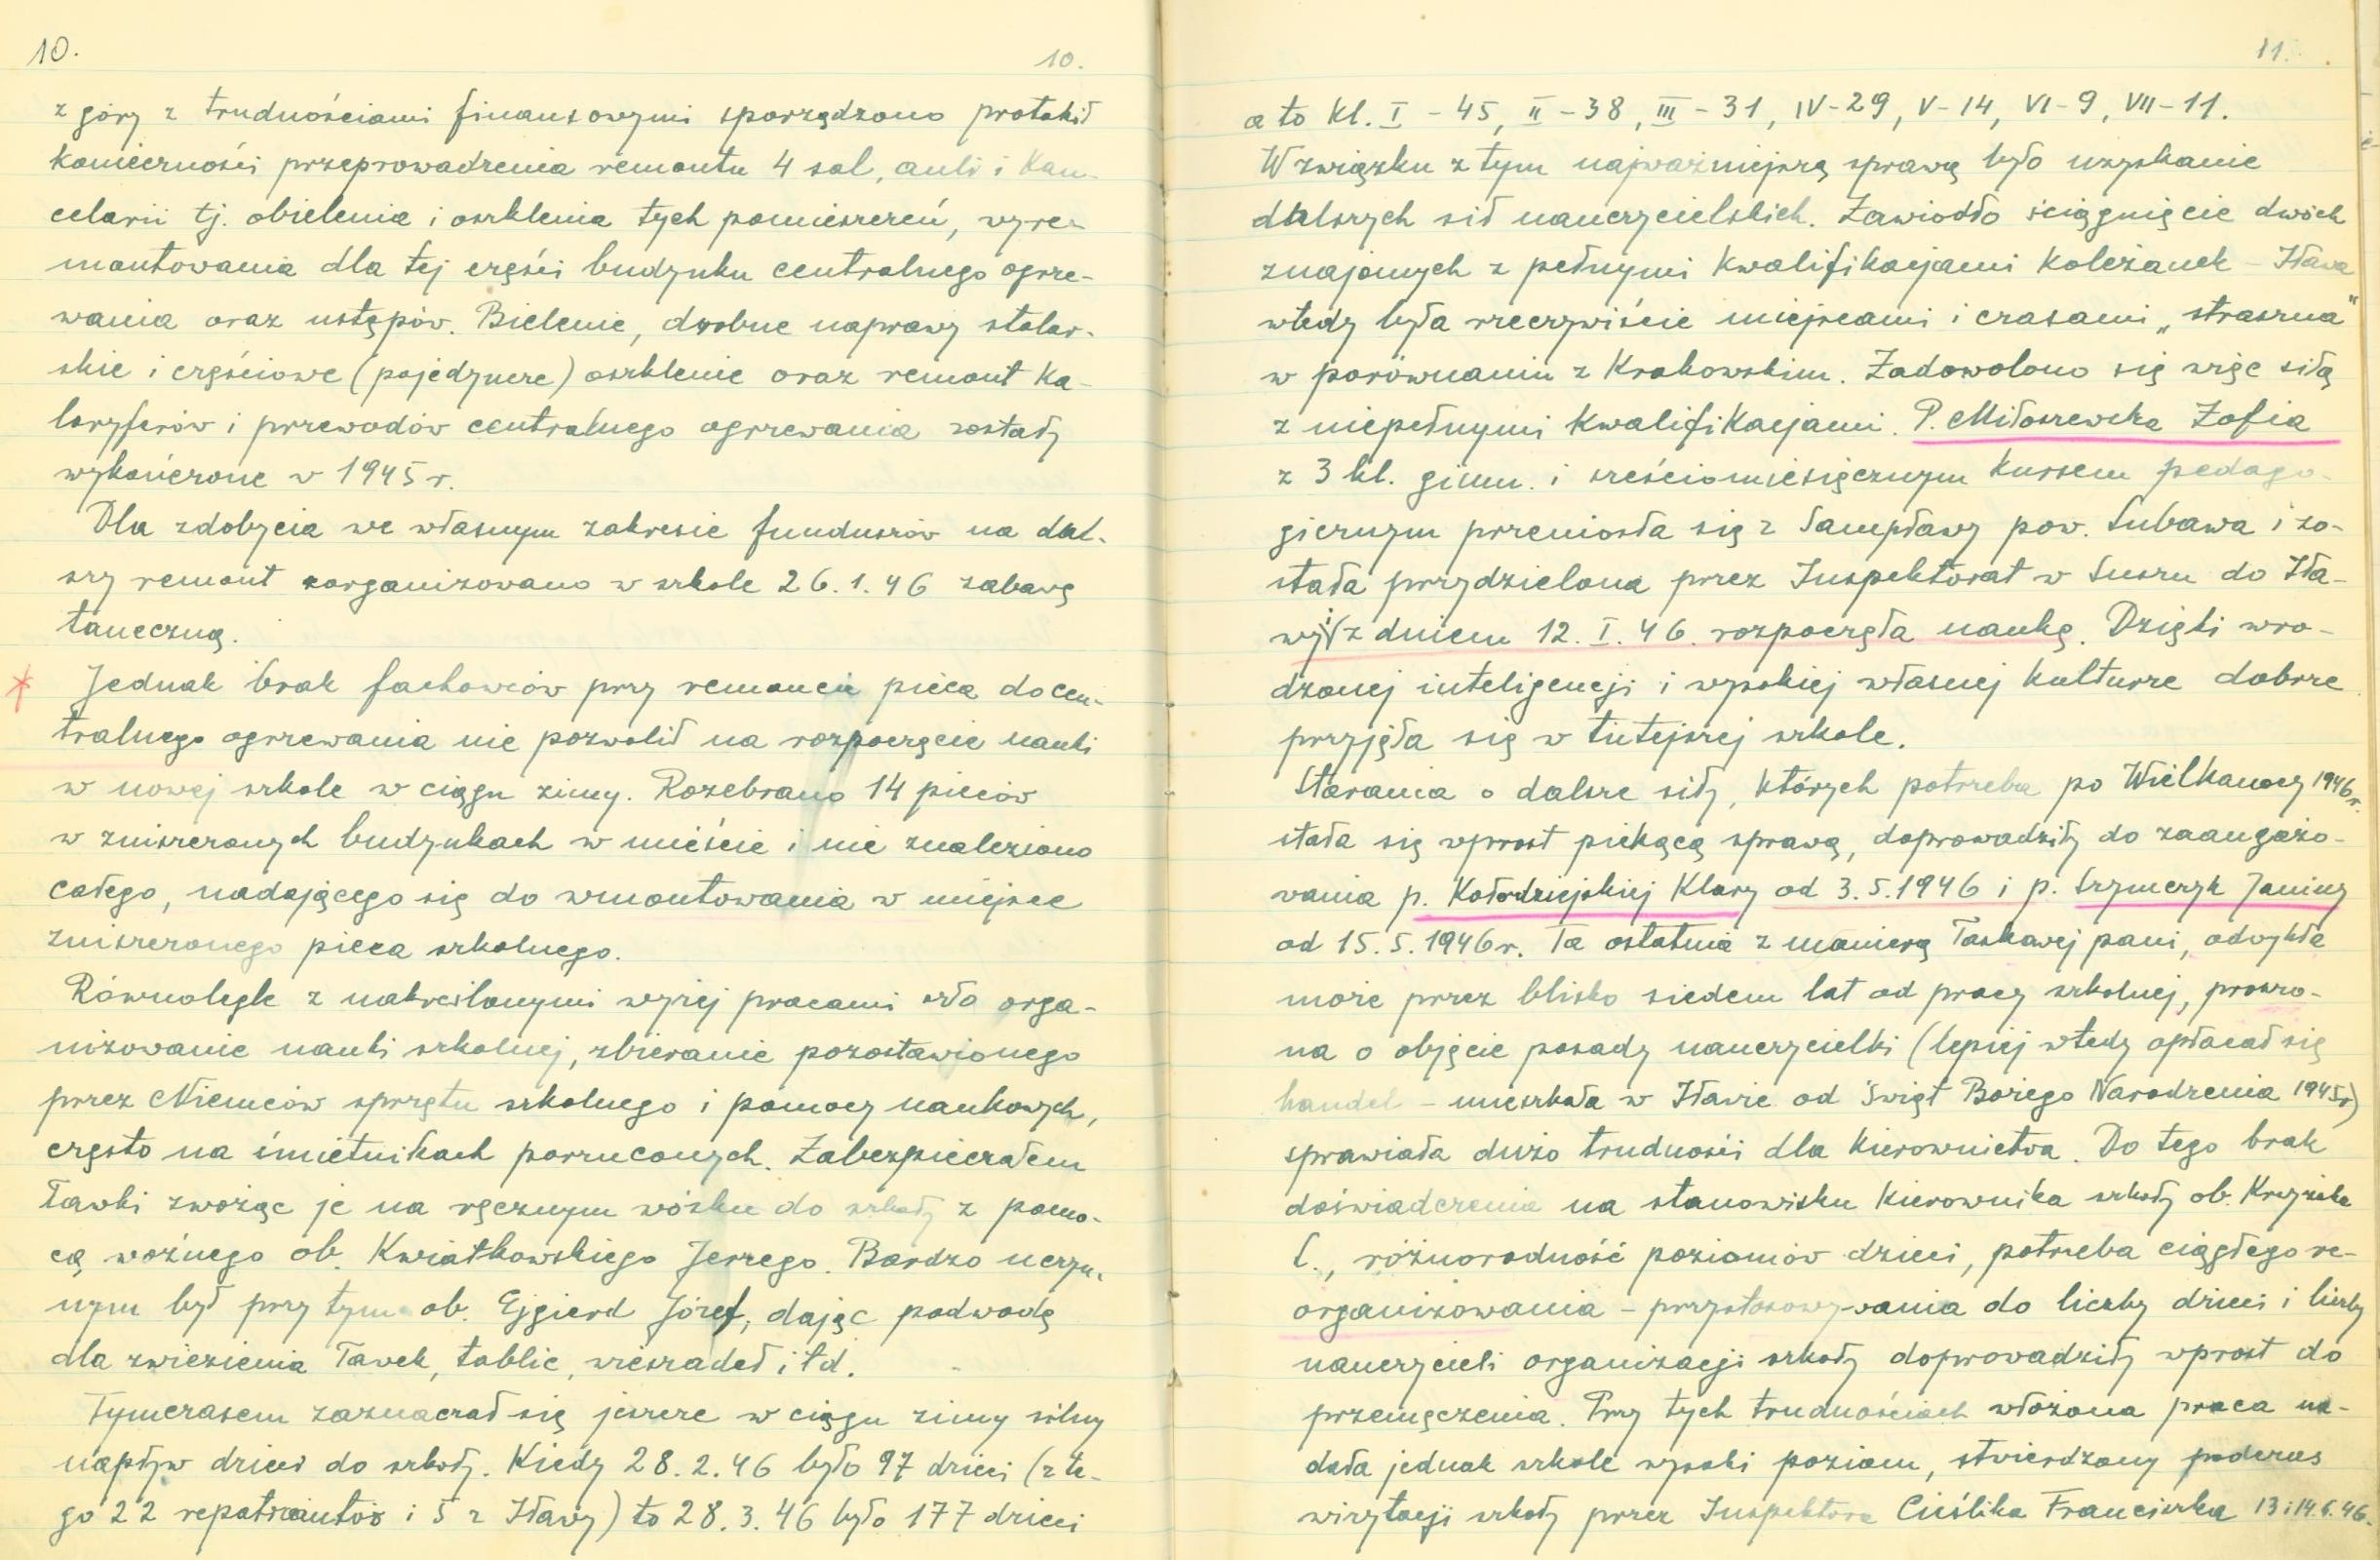 10.
10.
z góry z trudnościami finansowymi sporządzono protokół
konieczności przeprowadzenia remontu 4 sal, auli i kan-
celarii tj. obielenia i oszklenia tych pomieszczeń, wyre-
montowania dla tej części budynku centralnego ogrze-
wania oraz ustępów. Bielenie, drobne naprawy stolar-
skie i częściowe (pojedyncze) oszklenie oraz remont ka-
loryferów i przewodów centralnego ogrzewania zostały
wykończone w 1945 r.
Dla zdobycia we własnym zakresie funduszów na dal-
szy remont zorganizowano w szkole 26.1.46 zabawę
taneczną.
Jednak brak fachowców przy remoncie pieca do cen-
tralnego ogrzewania nie pozwolił na rozpoczęcie nauki
w nowej szkole w ciągu zimy. Rozebrano 14 pieców
w zniszczonych budynkach w mieście i nie znaleziono
całego, nadającego się do wmontowania w miejsce
zniszczonego pieca szkolnego.
Równolegle z nakreślonymi wyżej pracami szło orga-
nizowanie nauki szkolnej, zbieranie pozostawionego
przez Niemców sprzętu szkolnego i pomocy naukowych,
często na śmietnikach porzuconych. Zabezpieczałem
ławki zwożąc je na ręcznym wózku do szkoły z pomo-
cą woźnego ob. Kwiatkowskiego Jerzego. Bardzo uczyn-
nym był przy tym ob. Ejgierd Józef, dając podwodę
dla zwiezienia ławek, tablic, wieszadeł itd.
Tymczasem zaznaczał się jeszcze w ciągu zimy silny
napływ dzieci do szkoły. Kiedy 28.2.46 było 97 dzieci (z te-
go 22 repatriantów i 5 z Iławy) to 28.3.46 było 177 dzieci
11.
a to kl. I - 45, II - 38, III - 31, IV - 29, V - 14, VI - 9, VII - 11.
W związku z tym najważniejszą sprawą było uzyskanie
dalszych sił nauczycielskich. Zawiodło ściągnięcie dwóch
znajomych z pełnymi kwalifikacjami koleżanek - Iława
wtedy była rzeczywiście miejscami i czasami „straszna"
w porównaniu z Krakowskim. Zadowolono się więc siłą
z niepełnymi kwalifikacjami. P. Miłoszewska Zofia
z 3 kl. gimn. i sześciomiesięcznym kursem pedago-
gicznym przeniosła się z Sampławy pow. Lubawa i zo-
stała przydzielona przez Inspektorat w Suszu do Iła-
wy i z dniem 12.I.46. rozpoczęła naukę. Dzięki wro-
dzonej inteligencji i wysokiej własnej kulturze dobrze
przyjęła się w tutejszej szkole.
Starania o dalsze siły, których potrzeba po Wielkanocy 1946 r.
stała się wprost piekącą sprawą, doprowadziły do zaangażo-
wania p. Kołodziejskiej Klary od 3.5.1946 i p. Szymczyk Janiny
od 15.5.1946 r. Ta ostatnia z manierą łaskawej pani, odwykła
może przez blisko siedem lat od pracy szkolnej, proszo-
na o objęcie posady nauczycielki (lepiej wtedy opłacał się
handel - mieszkała w Iławie od Świąt Bożego Narodzenia 1945 r)
sprawiała dużo trudności dla kierownictwa. Do tego brak
doświadczenia na stanowisku kierownika szkoły ob. Krzyżaka
C., różnorodność poziomów dzieci, potrzeba ciągłego re-
organizowania - przystosowywania do liczby dzieci i liczby
nauczycieli organizacji szkoły doprowadziły wprost do
przemęczenia. Przy tych trudnościach włożona praca na-
dała jednak szkole wysoki poziom, stwierdzony podczas
wizytacji szkoły przez Inspektora Cieślika Franciszka 13 i 14.6.46.